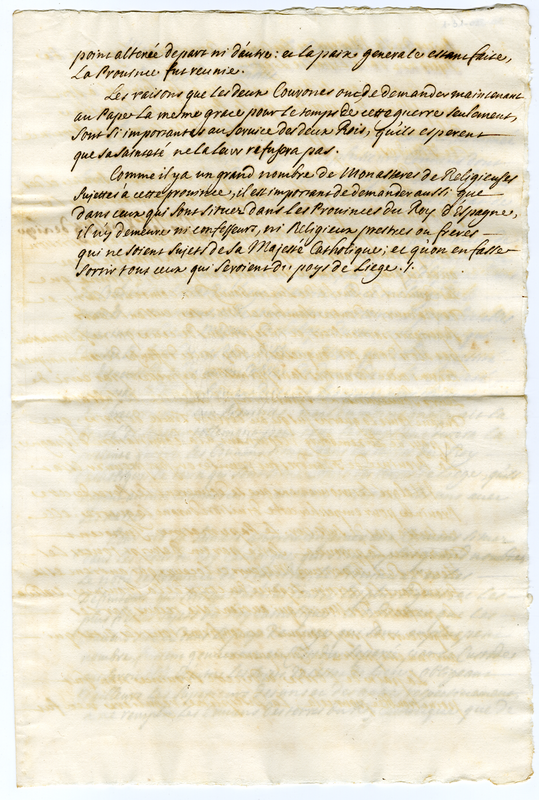 point alterée de part ni d'autre: et la paix generale estant faite,
La Province fut reunie.
Les raisons que les deux Couronnes ont de demander maintenant
au Pape La meme grace pour le temps de cette guerre seulement,
sont si importantes au service des deux Rois, qu'ils esperent
que sa Sainteté ne la leur refusera pas.
Comme il y a un grand nombre de Monasteres de Religieuses
sujettes à cette province, il est important de demander aussi que
dans ceux qui sont situez dans Les Provinces du Roy d'Espagne,
il n'y demeure ni confesseurs, ni Religieux prestres ou freres
qui ne soient sujets de sa Majesté Catholique; et qu'on en fasse
sortir tous ceux qui seroient du pays de Liege./.